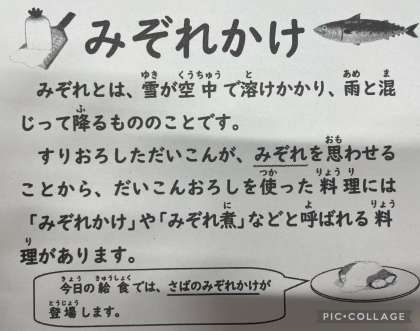 みぞれかけ
みぞれとは、雪が空中で溶けかかり、雨と混
じって降るもののことです。
すりおろしただいこんが、みぞれを思わせる
ことから、だいこんおろしを使った料理には
「みぞれかけ」や「みぞれ煮」などと呼ばれる料
理があります。
今日の給食では、さばのみぞれかけが
登場します。
PIC・COLLAGE